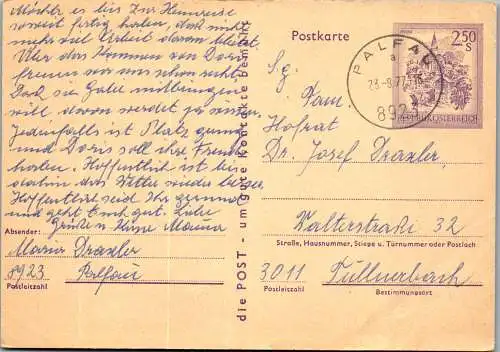 Möchte es bis zur Heimreise
soweit fertig haben, daß nicht
mehr viel Arbeit daran bleibt.
Über das Kommen von Doris
freuen wir uns schon recht.
Daß sie Gabi mitbringen
will, daran werdet ja
Jedenfalls ist Platz genug
und Doris soll ihre Freude
haben. Hoffentlich ist bis
dahin das Wetter wieder besser.
Hoffentlich seid Ihr gesund
und geht Euch gut. Liebe
Grüße u Küsse Mama
Absender:
Maria Draxler
8923 Palfau
Postleitzahl
die POST - um gute Kontakte bemüht
Postkarte
2.50
S
REPUBLIK ÖSTERREICH
PALFAU
a
23.-8.77
8923
Sg.
Herrn
Hofrat
Dr. Josef Draxler
Walterstraße 32
Straße, Hausnummer, Stiege u. Türnummer oder Postfach
3011 Tullnerbach
Postleitzahl Bestimmungsort